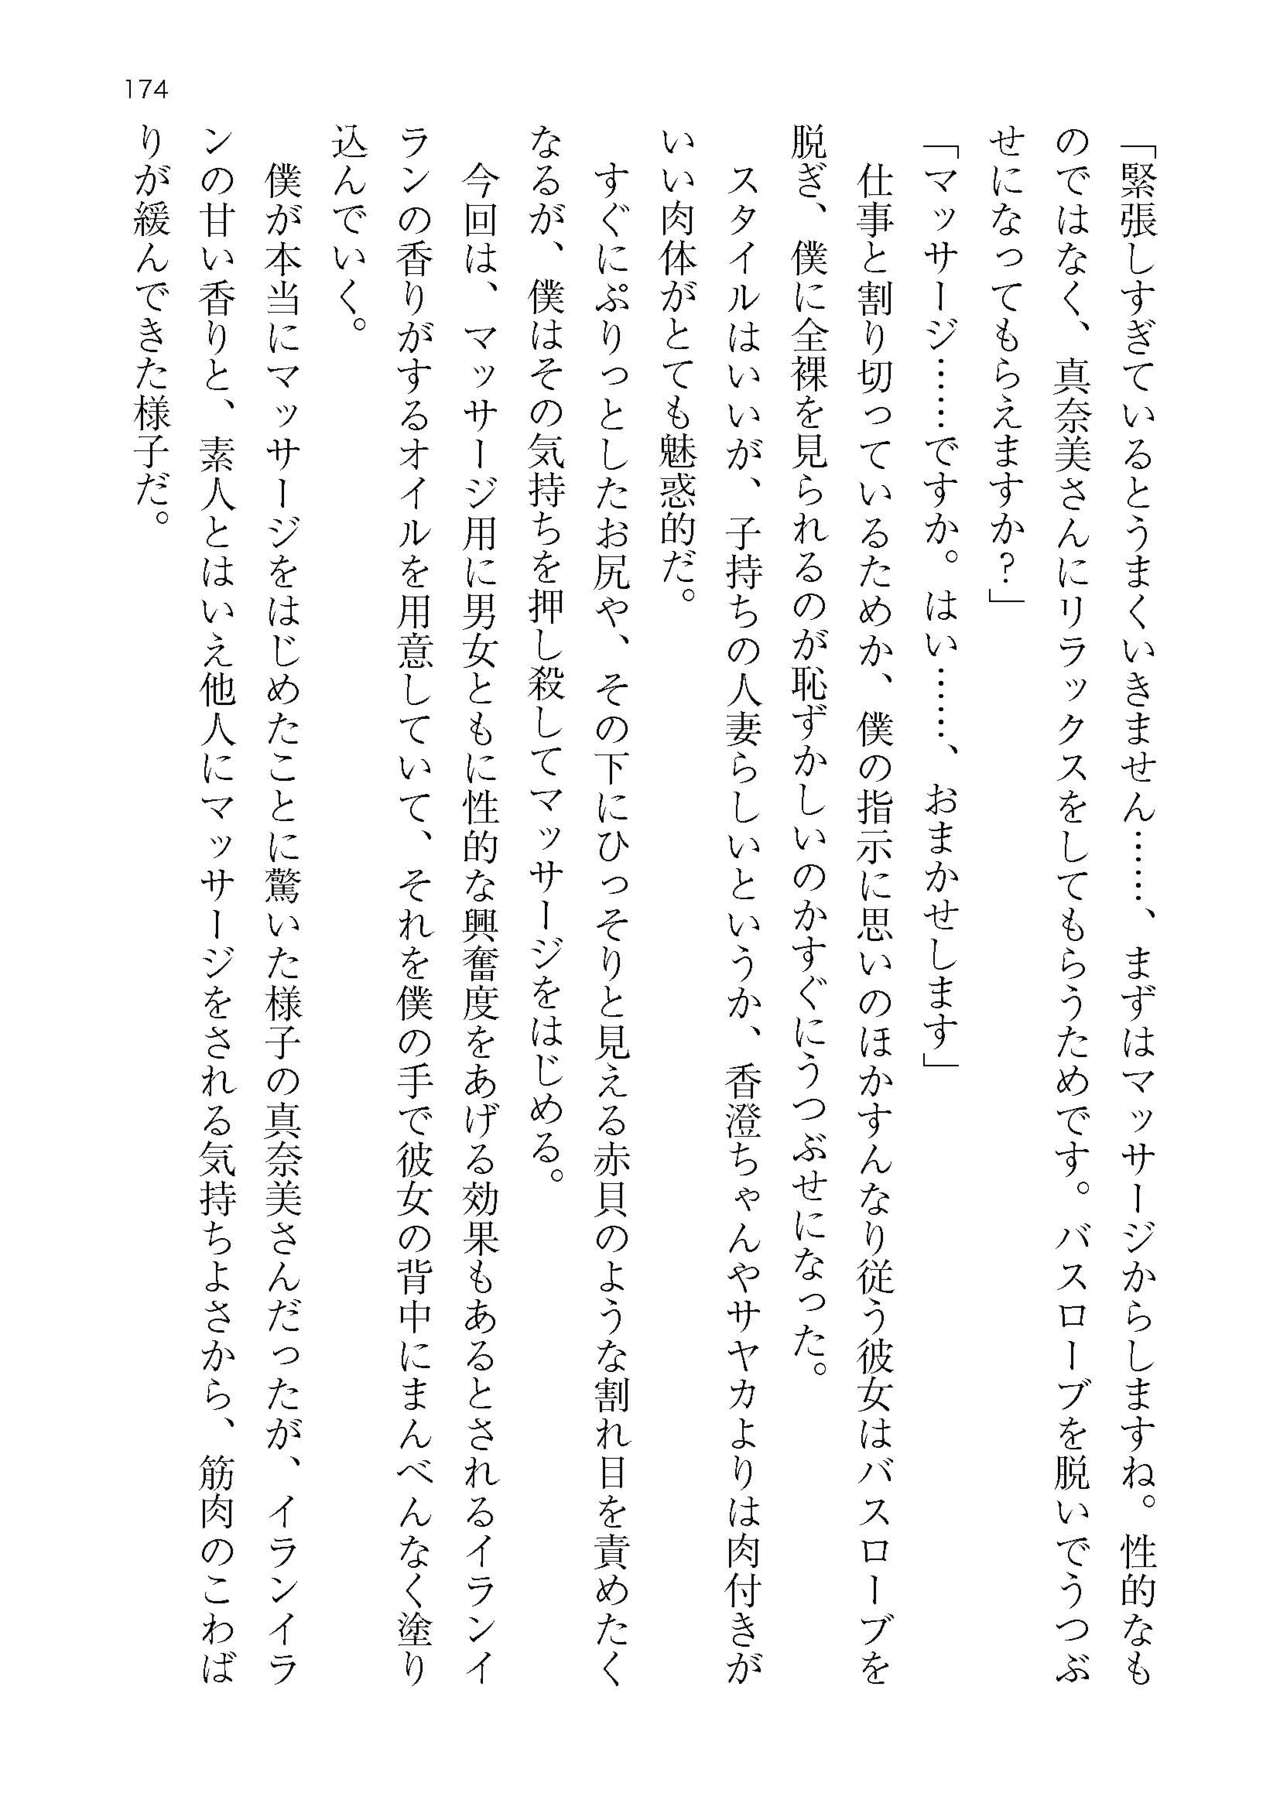 174
「緊張しすぎているとうまくいきません……、まずはマッサージからしますね。性的なも
のではなく、真奈美さんにリラックスをしてもらうためです。バスローブを脱いでうつぶ
せになってもらえますか?」
「マッサージ……ですか。はい……、おまかせします」
　仕事と割り切っているためか、僕の指示に思いのほかすんなり従う彼女はバスローブを
脱ぎ、僕に全裸を見られるのが恥ずかしいのかすぐにうつぶせになった。
　スタイルはいいが、子持ちの人妻らしいというか、香澄ちゃんやサヤカよりは肉付きが
いい肉体がとても魅惑的だ。
　すぐにぷりっとしたお尻や、その下にひっそりと見える赤貝のような割れ目を責めたく
なるが、僕はその気持ちを押し殺してマッサージをはじめる。
　今回は、マッサージ用に男女ともに性的な興奮度をあげる効果もあるとされるイランイ
ランの香りがするオイルを用意していて、それを僕の手で彼女の背中にまんべんなく塗り
込んでいく。
　僕が本当にマッサージをはじめたことに驚いた様子の真奈美さんだったが、イランイラ
ンの甘い香りと、素人とはいえ他人にマッサージをされる気持ちよさから、筋肉のこわば
りが緩んできた様子だ。